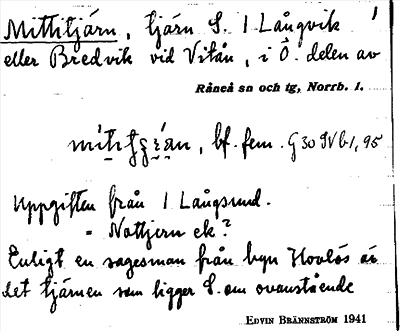 Mithtjärn, tjärn S. 1 Långvik
eller Bredvik vid Vitån, i Ö. delen av
Råneå sn och tg, Norrb. l.
bf. fem. G 30 IV b 1, 95
Uppgiften från 1 Långsund.
" Nottjern ek?
Enligt en sagesman från byn Hovlös är
det tjärnen som ligger S. om ovanstående
EDVIN BRÄNNSTRÖM 1941